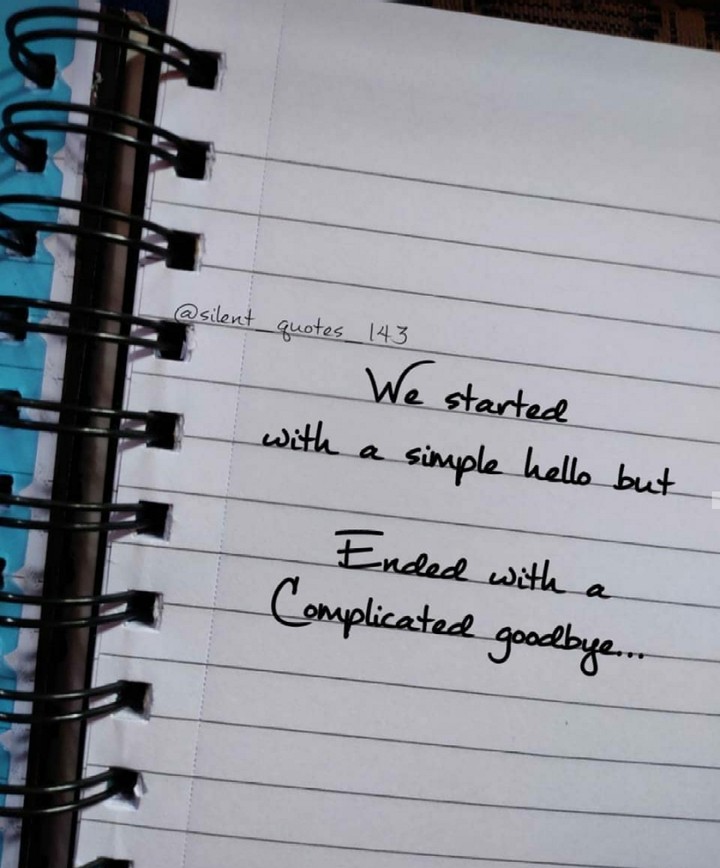 @silent_quotes_143
We started
with a simple hello but
Ended with a
Complicated goodbye...